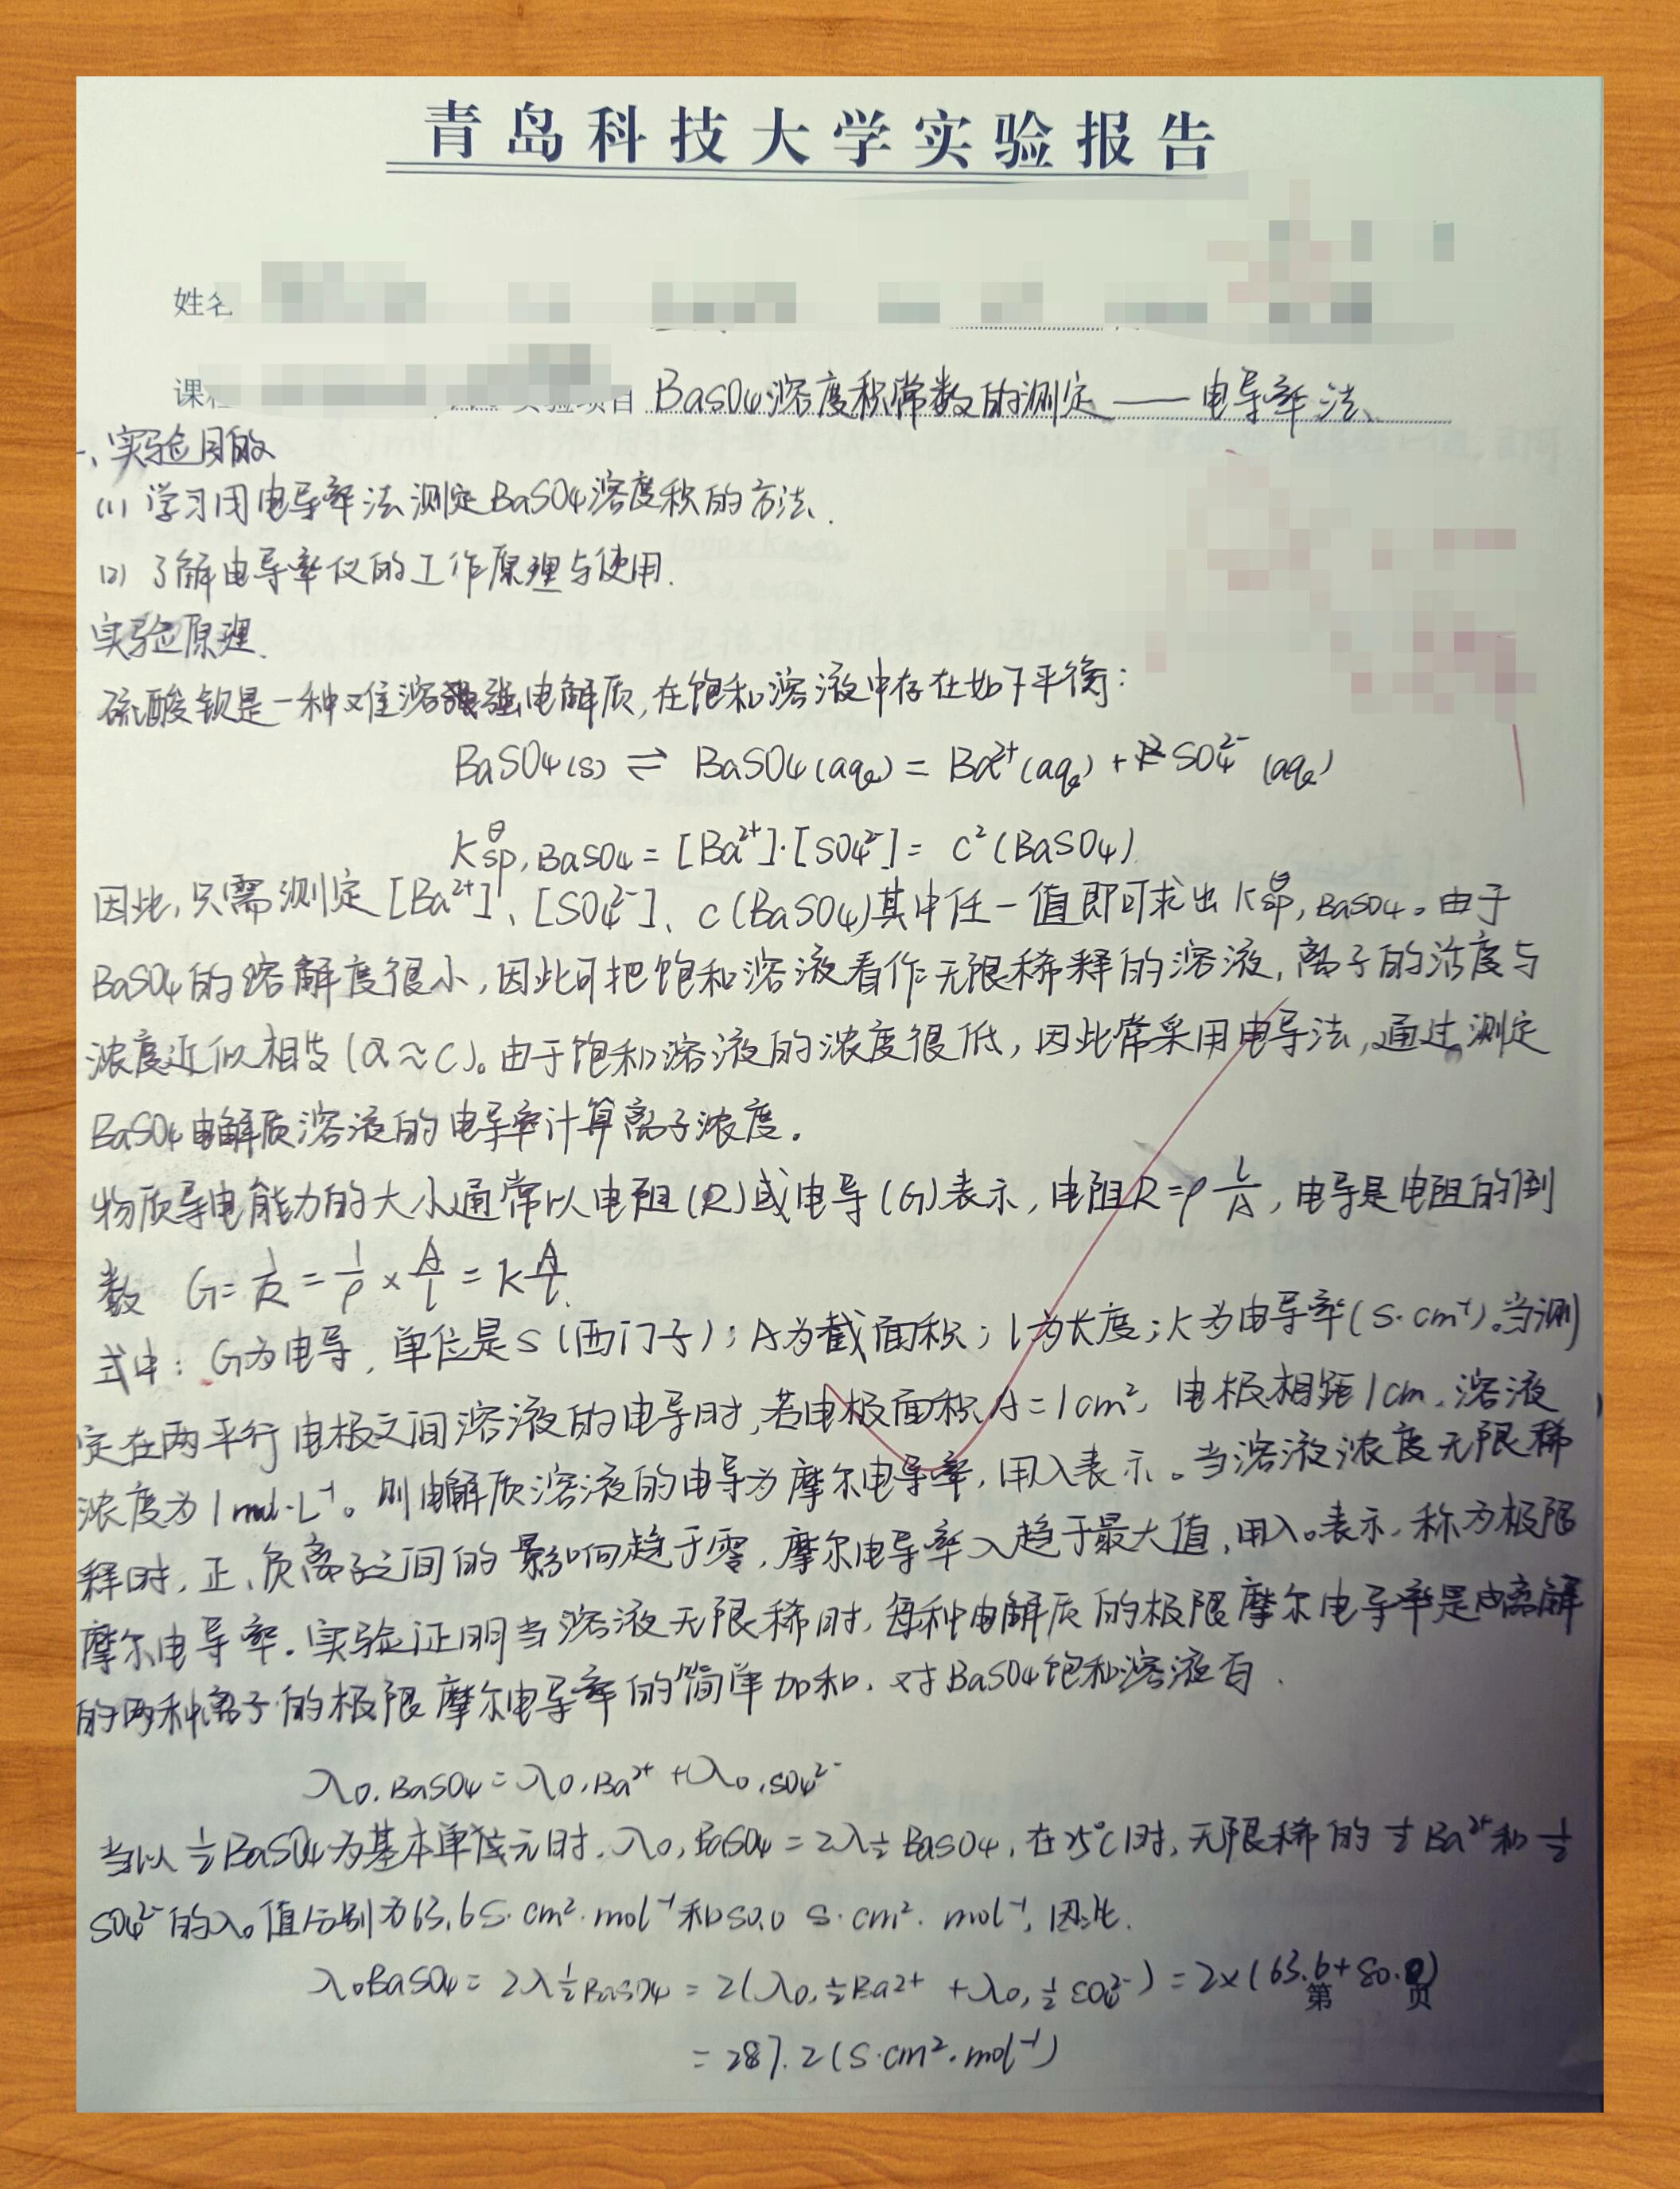 青岛科技大学实验报告
姓名
课程 实验项目 BaSO4溶度积常数的测定——电导率法
一、实验目的
(1) 学习用电导率法测定BaSO4溶度积的方法.
(2) 了解电导率仪的工作原理与使用.
实验原理.
硫酸钡是一种难溶强电解质,在饱和溶液中存在如下平衡:
BaSO4(s) ⇌ BaSO4(aq) = Ba²⁺(aq) + SO4²⁻(aq)
K^θsp, BaSO4 = [Ba²⁺]·[SO4²⁻] = c²(BaSO4)
因此,只需测定[Ba²⁺]、[SO4²⁻]、c(BaSO4)其中任一值即可求出K^θsp, BaSO4。由于
BaSO4的溶解度很小,因此可把饱和溶液看作无限稀释的溶液,离子的活度与
浓度近似相等(a≈c)。由于饱和溶液的浓度很低,因此常采用电导法,通过测定
BaSO4电解质溶液的电导率计算离子浓度。
物质导电能力的大小通常以电阻(R)或电导(G)表示,电阻R=ρ l/A,电导是电阻的倒
数 G=1/R=1/ρ×A/l=k A/l.
式中:G为电导,单位是S(西门子);A为截面积;l为长度;K为电导率(S·cm⁻¹)。当测
定在两平行电极之间溶液的电导时,若电极面积A=1cm²,电极相距1cm,溶液
浓度为1mol·L⁻¹。则电解质溶液的电导为摩尔电导率,用λ表示。当溶液浓度无限稀
释时,正、负离子之间的影响趋于零,摩尔电导率λ趋于最大值,用λ₀表示,称为极限
摩尔电导率.实验证明当溶液无限稀时,每种电解质的极限摩尔电导率是电离解
的两种离子的极限摩尔电导率的简单加和,对BaSO4饱和溶液有.
λ0,BaSO4=λ0,Ba²⁺+λ0,SO4²⁻
当以½BaSO4为基本单位元时,λ0,BaSO4=2λ½BaSO4,在25℃时,无限稀的½Ba²⁺和½
SO4²⁻的λ₀值分别为63.6S·cm²·mol⁻¹和80.0 S·cm²·mol⁻¹,因此.
λ0BaSO4=2λ½BaSO4=2(λ0,½Ba²⁺+λ0,½SO4²⁻)=2×(63.6+80.0)
第 页
=287.2(S·cm²·mol⁻¹)